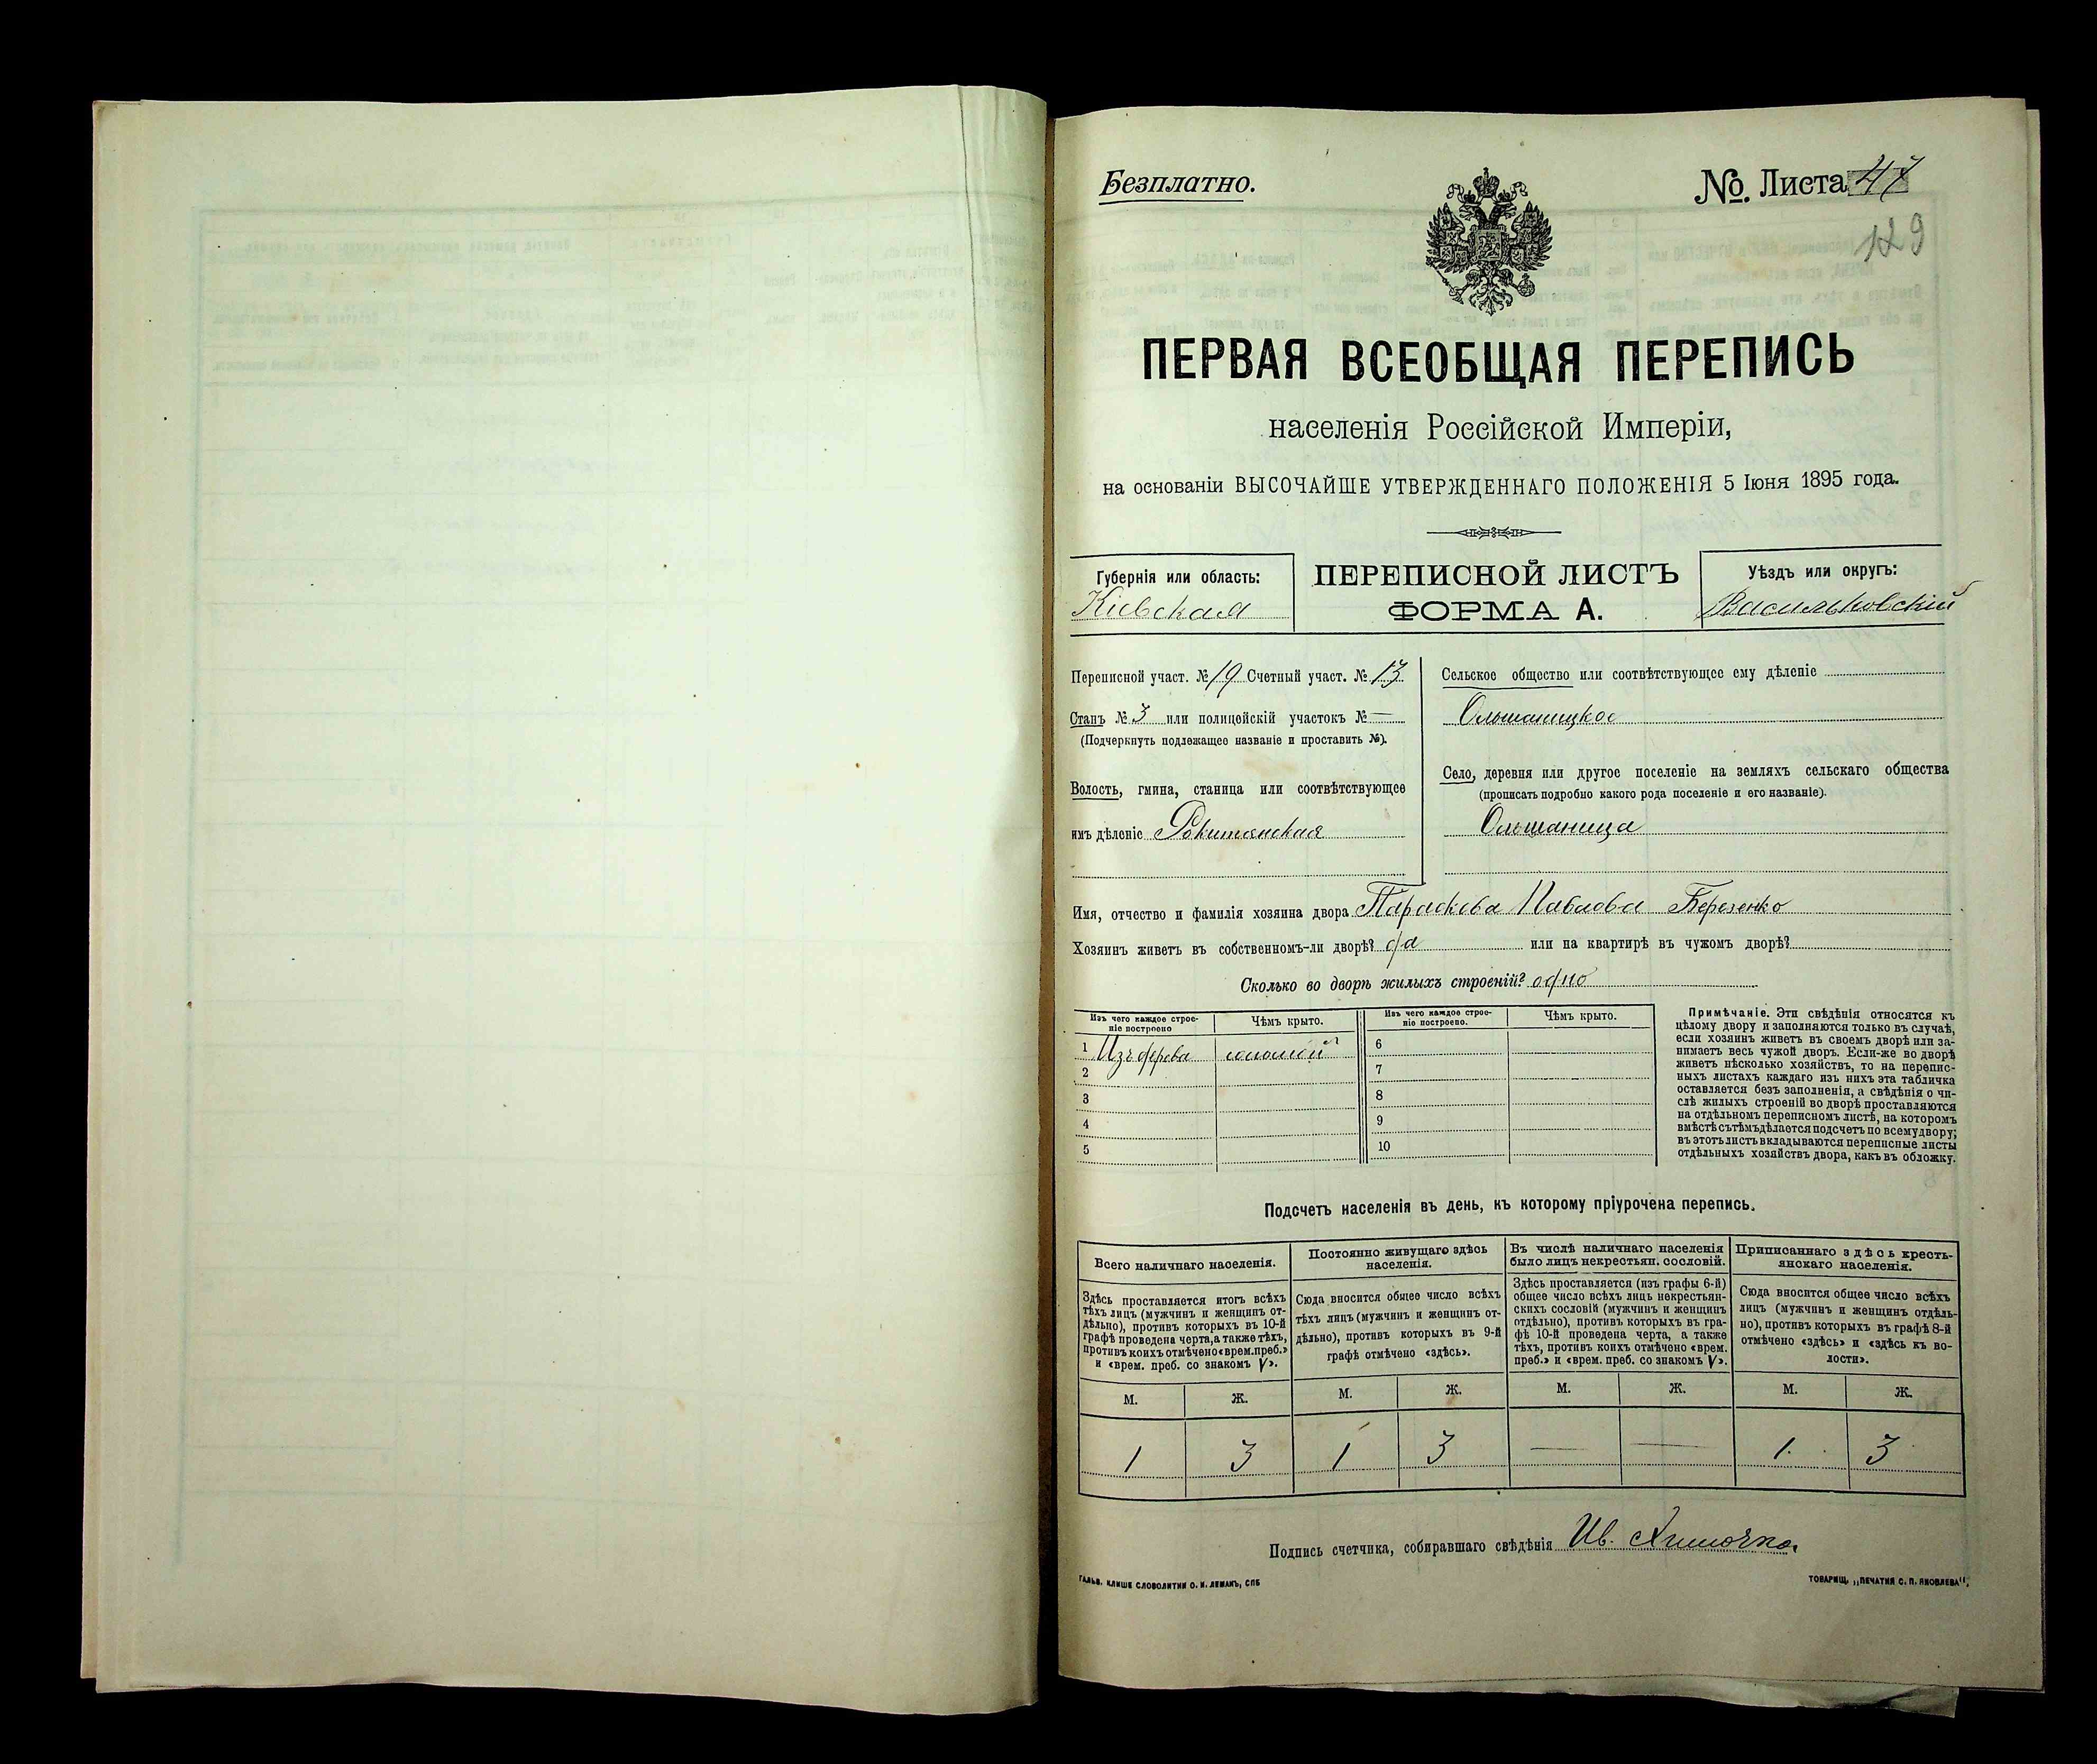 Безплатно.
№. Листа 47
129
ПЕРВАЯ ВСЕОБЩАЯ ПЕРЕПИСЬ
населенія Россійской Имперіи,
на основаніи ВЫСОЧАЙШЕ УТВЕРЖДЕННАГО ПОЛОЖЕНІЯ 5 Іюня 1895 года.
Губернія или область:
Кіевская
ПЕРЕПИСНОЙ ЛИСТЪ
ФОРМА А.
Уѣздъ или округъ:
Васильковскій
Переписной участ. № 19 Счетный участ. № 13
Станъ № 3 или полицейскій участокъ № —
(Подчеркнуть подлежащее названіе и проставить №).
Волость, гмина, станица или соотвѣтствующее
имъ дѣленіе Рокитянская
Сельское общество или соотвѣтствующее ему дѣленіе
Ольшаницкое
Село, деревня или другое поселеніе на земляхъ сельскаго общества
(прописать подробно какого рода поселеніе и его названіе).
Ольшаница
Имя, отчество и фамилія хозяина двора Параскева Павлова Березенко
Хозяинъ живетъ въ собственномъ-ли дворѣ? да или на квартирѣ въ чужомъ дворѣ?
Сколько во дворѣ жилыхъ строеній? одно
Изъ чего каждое строе-
ніе построено
Чѣмъ крыто.
1 Изъ дерева соломой
2
3
4
5
Изъ чего каждое строе-
ніе построено.
Чѣмъ крыто.
6
7
8
9
10
Примѣчаніе. Эти свѣдѣнія относятся къ
цѣлому двору и заполняются только въ случаѣ,
если хозяинъ живетъ въ своемъ дворѣ или за-
нимаетъ весь чужой дворъ. Если-же во дворѣ
живетъ нѣсколько хозяйствъ, то на перепис-
ныхъ листахъ каждаго изъ нихъ эта табличка
оставляется безъ заполненія, а свѣдѣнія о чи-
слѣ жилыхъ строеній во дворѣ проставляются
на отдѣльномъ переписномъ листѣ, на которомъ
вмѣстѣ съ тѣмъ дѣлается подсчетъ по всему двору;
въ этотъ листъ вкладываются переписные листы
отдѣльныхъ хозяйствъ двора, какъ въ обложку.
Подсчетъ населенія въ день, къ которому пріурочена перепись.
Всего наличнаго населенія.
Здѣсь проставляется итогъ всѣхъ
тѣхъ лицъ (мужчинъ и женщинъ от-
дѣльно), противъ которыхъ въ 10-й
графѣ проведена черта, а также тѣхъ,
противъ коихъ отмѣчено «врем. преб.»
и «врем. преб. со знакомъ V».
М. Ж.
1 3
Постоянно живущаго здѣсь
населенія.
Сюда вносится общее число всѣхъ
тѣхъ лицъ (мужчинъ и женщинъ от-
дѣльно), противъ которыхъ въ 9-й
графѣ отмѣчено «здѣсь».
М. Ж.
1 3
Въ числѣ наличнаго населенія
было лицъ некрестьян. сословій.
Здѣсь проставляется (изъ графы 6-й)
общее число всѣхъ лицъ некрестьян-
скихъ сословій (мужчинъ и женщинъ
отдѣльно), противъ которыхъ въ гра-
фѣ 10-й проведена черта, а также
тѣхъ, противъ коихъ отмѣчено «врем.
преб.» и «врем. преб. со знакомъ V».
М. Ж.
— —
Приписаннаго здѣсь кресть-
янскаго населенія.
Сюда вносится общее число всѣхъ
лицъ (мужчинъ и женщинъ отдѣль-
но), противъ которыхъ въ графѣ 8-й
отмѣчено «здѣсь» и «здѣсь къ во-
лости».
М. Ж.
1 3
Подпись счетчика, собиравшаго свѣдѣнія Ив.
ГАЛЬВ. КЛИШЕ СЛОВОЛИТНИ О. И. ЛЕМАНЪ, СПБ
ТОВАРИЩ. „ПЕЧАТНЯ С. П. ЯКОВЛЕВА“.